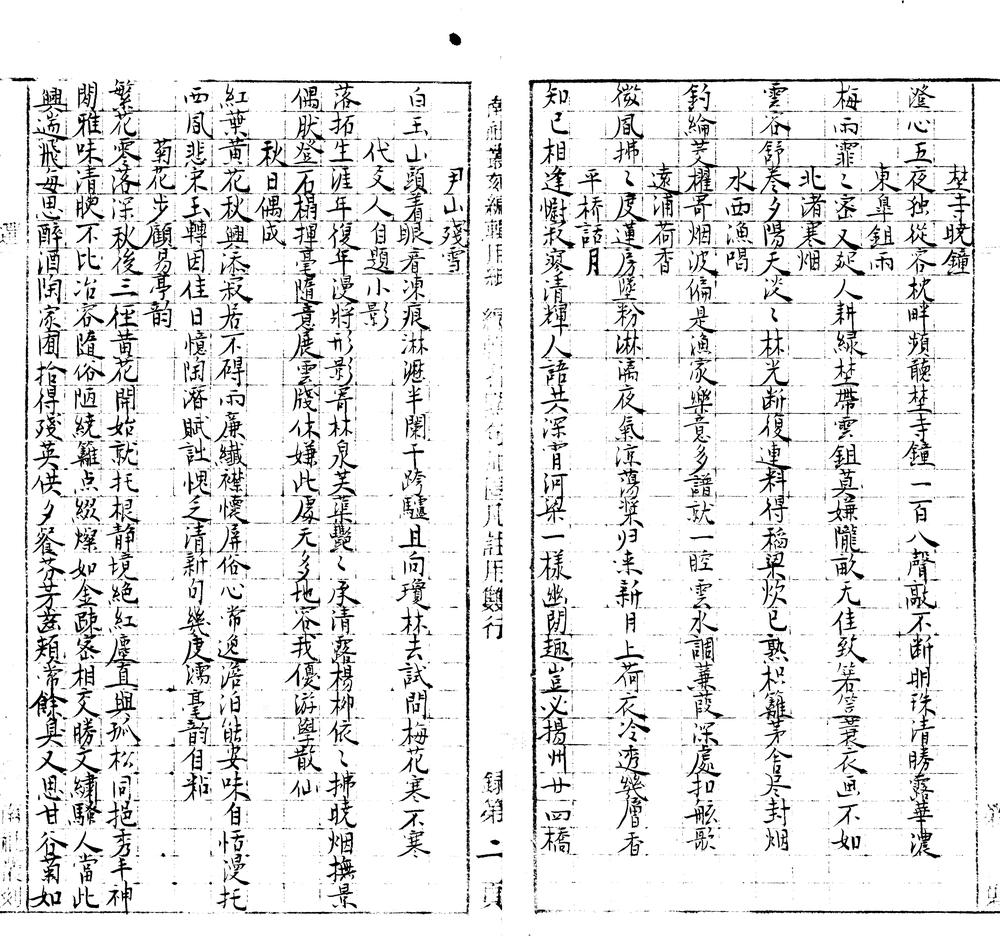 埜寺曉鐘
澄心五夜独從容枕畔頻聽埜寺鐘一百八聲敲不断明珠清勝露華濃
東臯鉏雨
梅雨霏〻密又疎人耕緑埜帶雲鉏莫嫌隴畝无佳致箬笠蓑衣画不如
北渚寒烟
雲容舒卷夕陽天淡〻林光断復連料得稻粱炊已熟枳籬茅舍尽封烟
水西漁唱
釣綸茭櫂寄烟波偏是漁家樂意多譜就一腔雲水調蒹葭深處扣舷歌
遠浦荷香
微風拂〻度蓮房墜粉淋漓夜氣涼蕩槳归来新月上荷衣冷透幾層香
平橋話月
知已相逢慰寂寥清輝人語共深宵河梁一樣幽閒趣豈必揚州廿四橋
尹山殘雪
白玉山頭着眼看凍痕淋漉半闌干跨驢且向瓊林去試問梅花寒不寒
代友人自題小影
落拓生涯年復年漫將形影寄林泉芙蕖艷〻承清露楊柳依〻拂曉烟撫景
偶肰登石榻揮毫隨意展雲牋休嫌此處无多地容我優游學散仙
秋日偶成
紅葉黄花秋興添寂居不碍雨廉纖襟懷屏俗心常逸澹泊能安味自恬漫托
西風悲宋玉轉因佳日憶陶潛賦詩愧乏清新句幾度濡毫韵自粘
菊花步顧易亭韵
繁花零落深秋後三徑黄花開始就托根静境絶紅塵直與孤松同挹秀丰神
閒雅味清腴不比冶容隨俗陋繞籬点綴燦如金疎密相交勝文繡騷人當此
興遄飛每思醉酒陶家囿拾得殘英供夕餐芬芳茲頰常餘臭又思甘谷菊如
録第二頁